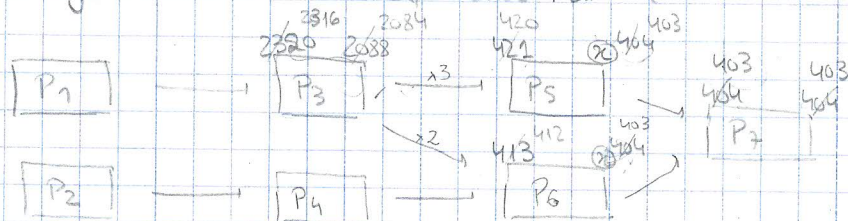 2316 2084 420 403
2320 2088 421 x 404
P1 P3 x3 P5 403 403
404 404
x2 412 403 P7
413 x 404
P2 P4 P6